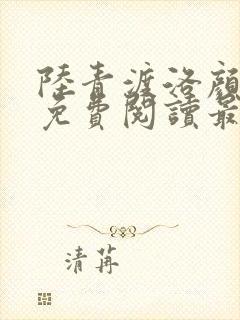 陸青漄洛顏
免費閱讀最
清苒